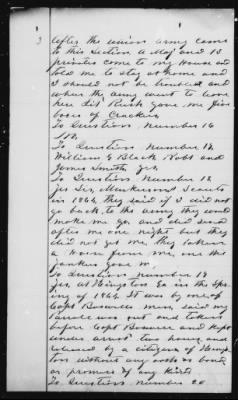 3
After the union army came
to this section A Maj and 15
privates come to my house and
told me to stay at home and
I should not be troubled and
when the army went to leave
here Lit Rush gave me five
boxes of Crackers
To Question Number 16
No.
To Question Number 17
William G Black Robt and
James Smith Jrs
To Question Number 18
yes Sir, Scouts
in 1864, they said if I did not
go back to the army they would
make me go, and did send
after me one night but they
did not get me, they taken
a horse from me, one the
yankees gave m
To Question Number 19
yes, at Hampton Ga in the Spr
ing of 1864. It was by one of
Capt men, said my
parole was out and taken
before Capt and kept
under arrest two hours and
released by a citizen of Hamp
ton without any oath or bond
or promise of any kind
To Question number 20